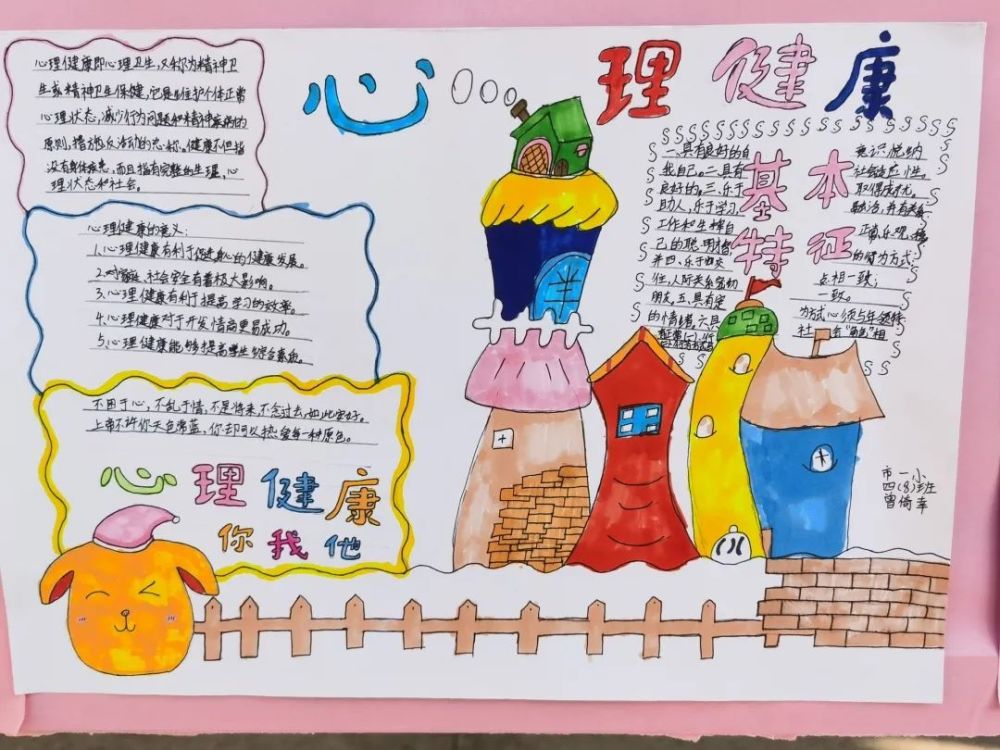 心理健康
心理健康即心理卫生,又称为精神卫
生或精神卫生保健,它是维护个体正常
心理状态,减少行为问题和精神疾病的
原则,措施及活动的总称。健康不但指
没有身体疾患,而且指有完整的生理,心
理状态和社会。
心理健康的意义:
1.心理健康有利于促进身心的健康发展。
2.对家庭,社会安全有着极大影响。
3.心理健康有利于提高学习的效率。
4.心理健康对于开发情商更易成功。
5.心理健康能够提高学生综合素质。
不困于心,不乱于情,不是将来,不念过去,如此安好。
上帝不许你天色常蓝,你却可以热爱每一种原色。
心理健康
你我他
基本
特征
一、具有良好的自
我自己。二、具有
良好的,三、乐于
助人,乐于学习,
工作和生
己的聪明
并四、乐于
往,人际关系
朋友。五、具有
的情绪。六、具
意识悦纳
社会适应性。
取得成就。
正常,乐观,
的努力方式
一致。
方式心须与年龄
社 "角色"相
市一小
四(8)班
曾倚幸